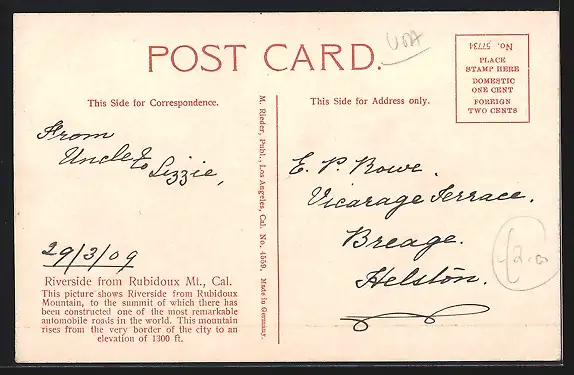 POST CARD.
USA
No. 57734
PLACE
STAMP HERE
DOMESTIC
ONE CENT
FOREIGN
TWO CENTS
This Side for Correspondence.
This Side for Address only.
From
Uncle &
Lizzie,
29/3/09
Riverside from Rubidoux Mt., Cal.
This picture shows Riverside from Rubidoux
Mountain, to the summit of which there has
been constructed one of the most remarkable
automobile roads in the world. This mountain
rises from the very border of the city to an
elevation of 1300 ft.
M. Rieder, Publ., Los Angeles, Cal. No. 4559. Made in Germany.
E. P. Rowe.
Vicarage Terrace.
Breage.
Helston.